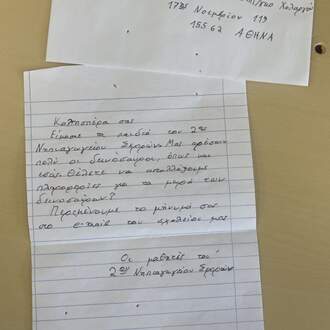 Χολαργό
17ης Νοεμβρίου 119
155 62 ΑΘΗΝΑ
Καλησπέρα σας
Είμαστε τα παιδιά του 2ου
Νηπιαγωγείου Σερρών. Μας αρέσουν
πολύ οι δεινόσαυροι, όπως και
εσάς. Θέλετε να ανταλλάξουμε
πληροφορίες για τα μωρά των
δεινοσαύρων?
Περιμένουμε το μήνυμά σας
στο e-mail του σχολείου μας
Οι μαθητές του
2ου Νηπιαγωγείου Σερρών